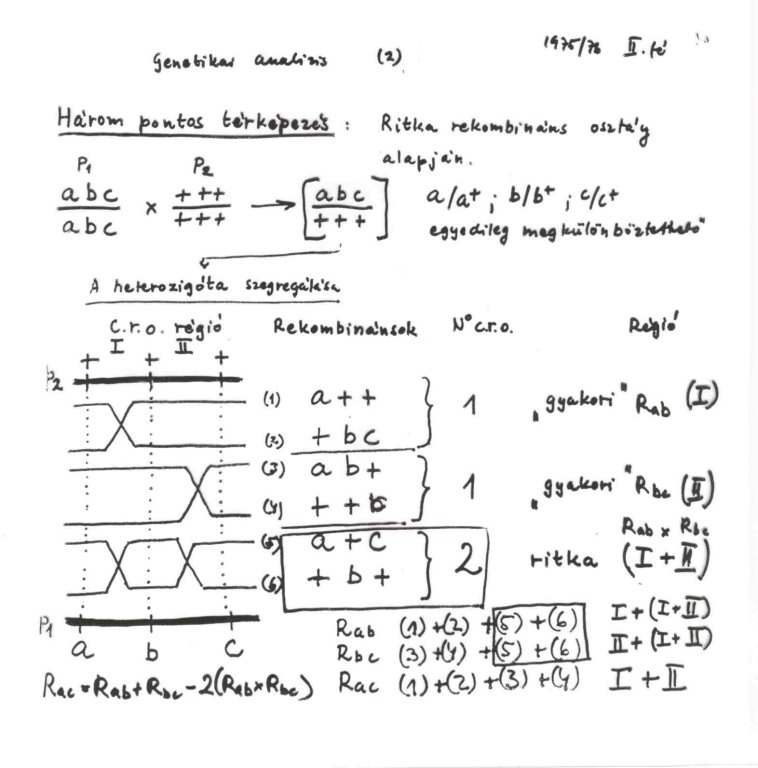 Genetikai analizis (2) 1975/76 II. fé
Három pontos térképezés : Ritka rekombináns osztály
alapján.
P1 P2
abc/abc × +++/+++ → [abc/+++] a/a+ ; b/b+ ; c/c+
egyedileg megkülönböztethető"
A heterozigóta szegregálása
c.r.o. régió Rekombinánsok N° c.r.o. Régió
I II
+ + +
P2
(1) a + + } 1 "gyakori" Rab (I)
(2) + b c
(3) a b + } 1 "gyakori" Rbc (II)
(4) + + b
Rab x Rbc
(5) a + c } 2 ritka (I + II)
(6) + b +
P1
a b c
Rab (1) + (2) + (5) + (6) I + (I+II)
Rbc (3) + (4) + (5) + (6) II + (I + II)
Rac = Rab + Rbc - 2(Rab x Rbc) Rac (1) + (2) + (3) + (4) I + II